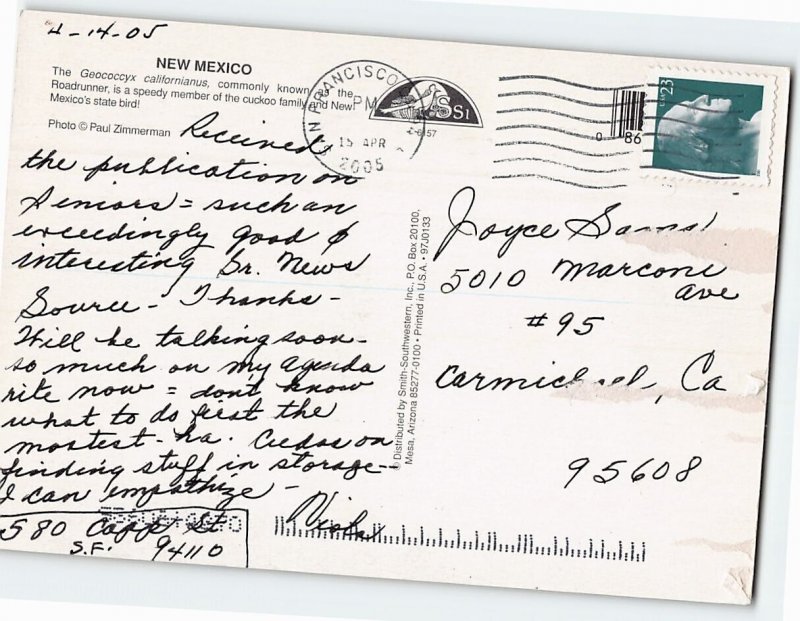 4-14-05
NEW MEXICO
The Geococcyx californianus, commonly known as the
Roadrunner, is a speedy member of the cuckoo family and New
Mexico's state bird!
Photo © Paul Zimmerman
Received
the publication on
Seniors = such an
exceedingly good &
interesting Sr. News
Source - Thanks -
Will be talking soon -
so much on my agenda
rite now = dont know
what to do first the
mostest - ha. on
finding stuff in storage -
I can empathize -
580 Capp St
S.F. 94110
SAN FRANCISCO
PM
15 APR
2005
SSI
C-6157
0 86
USA 23
© Distributed by Smith-Southwestern, Inc., P.O. Box 20100,
Mesa, Arizona 85277-0100 • Printed in U.S.A. • 97J0133
Joyce
5010 Marconi
Ave
#95
Carmichael, Ca
95608